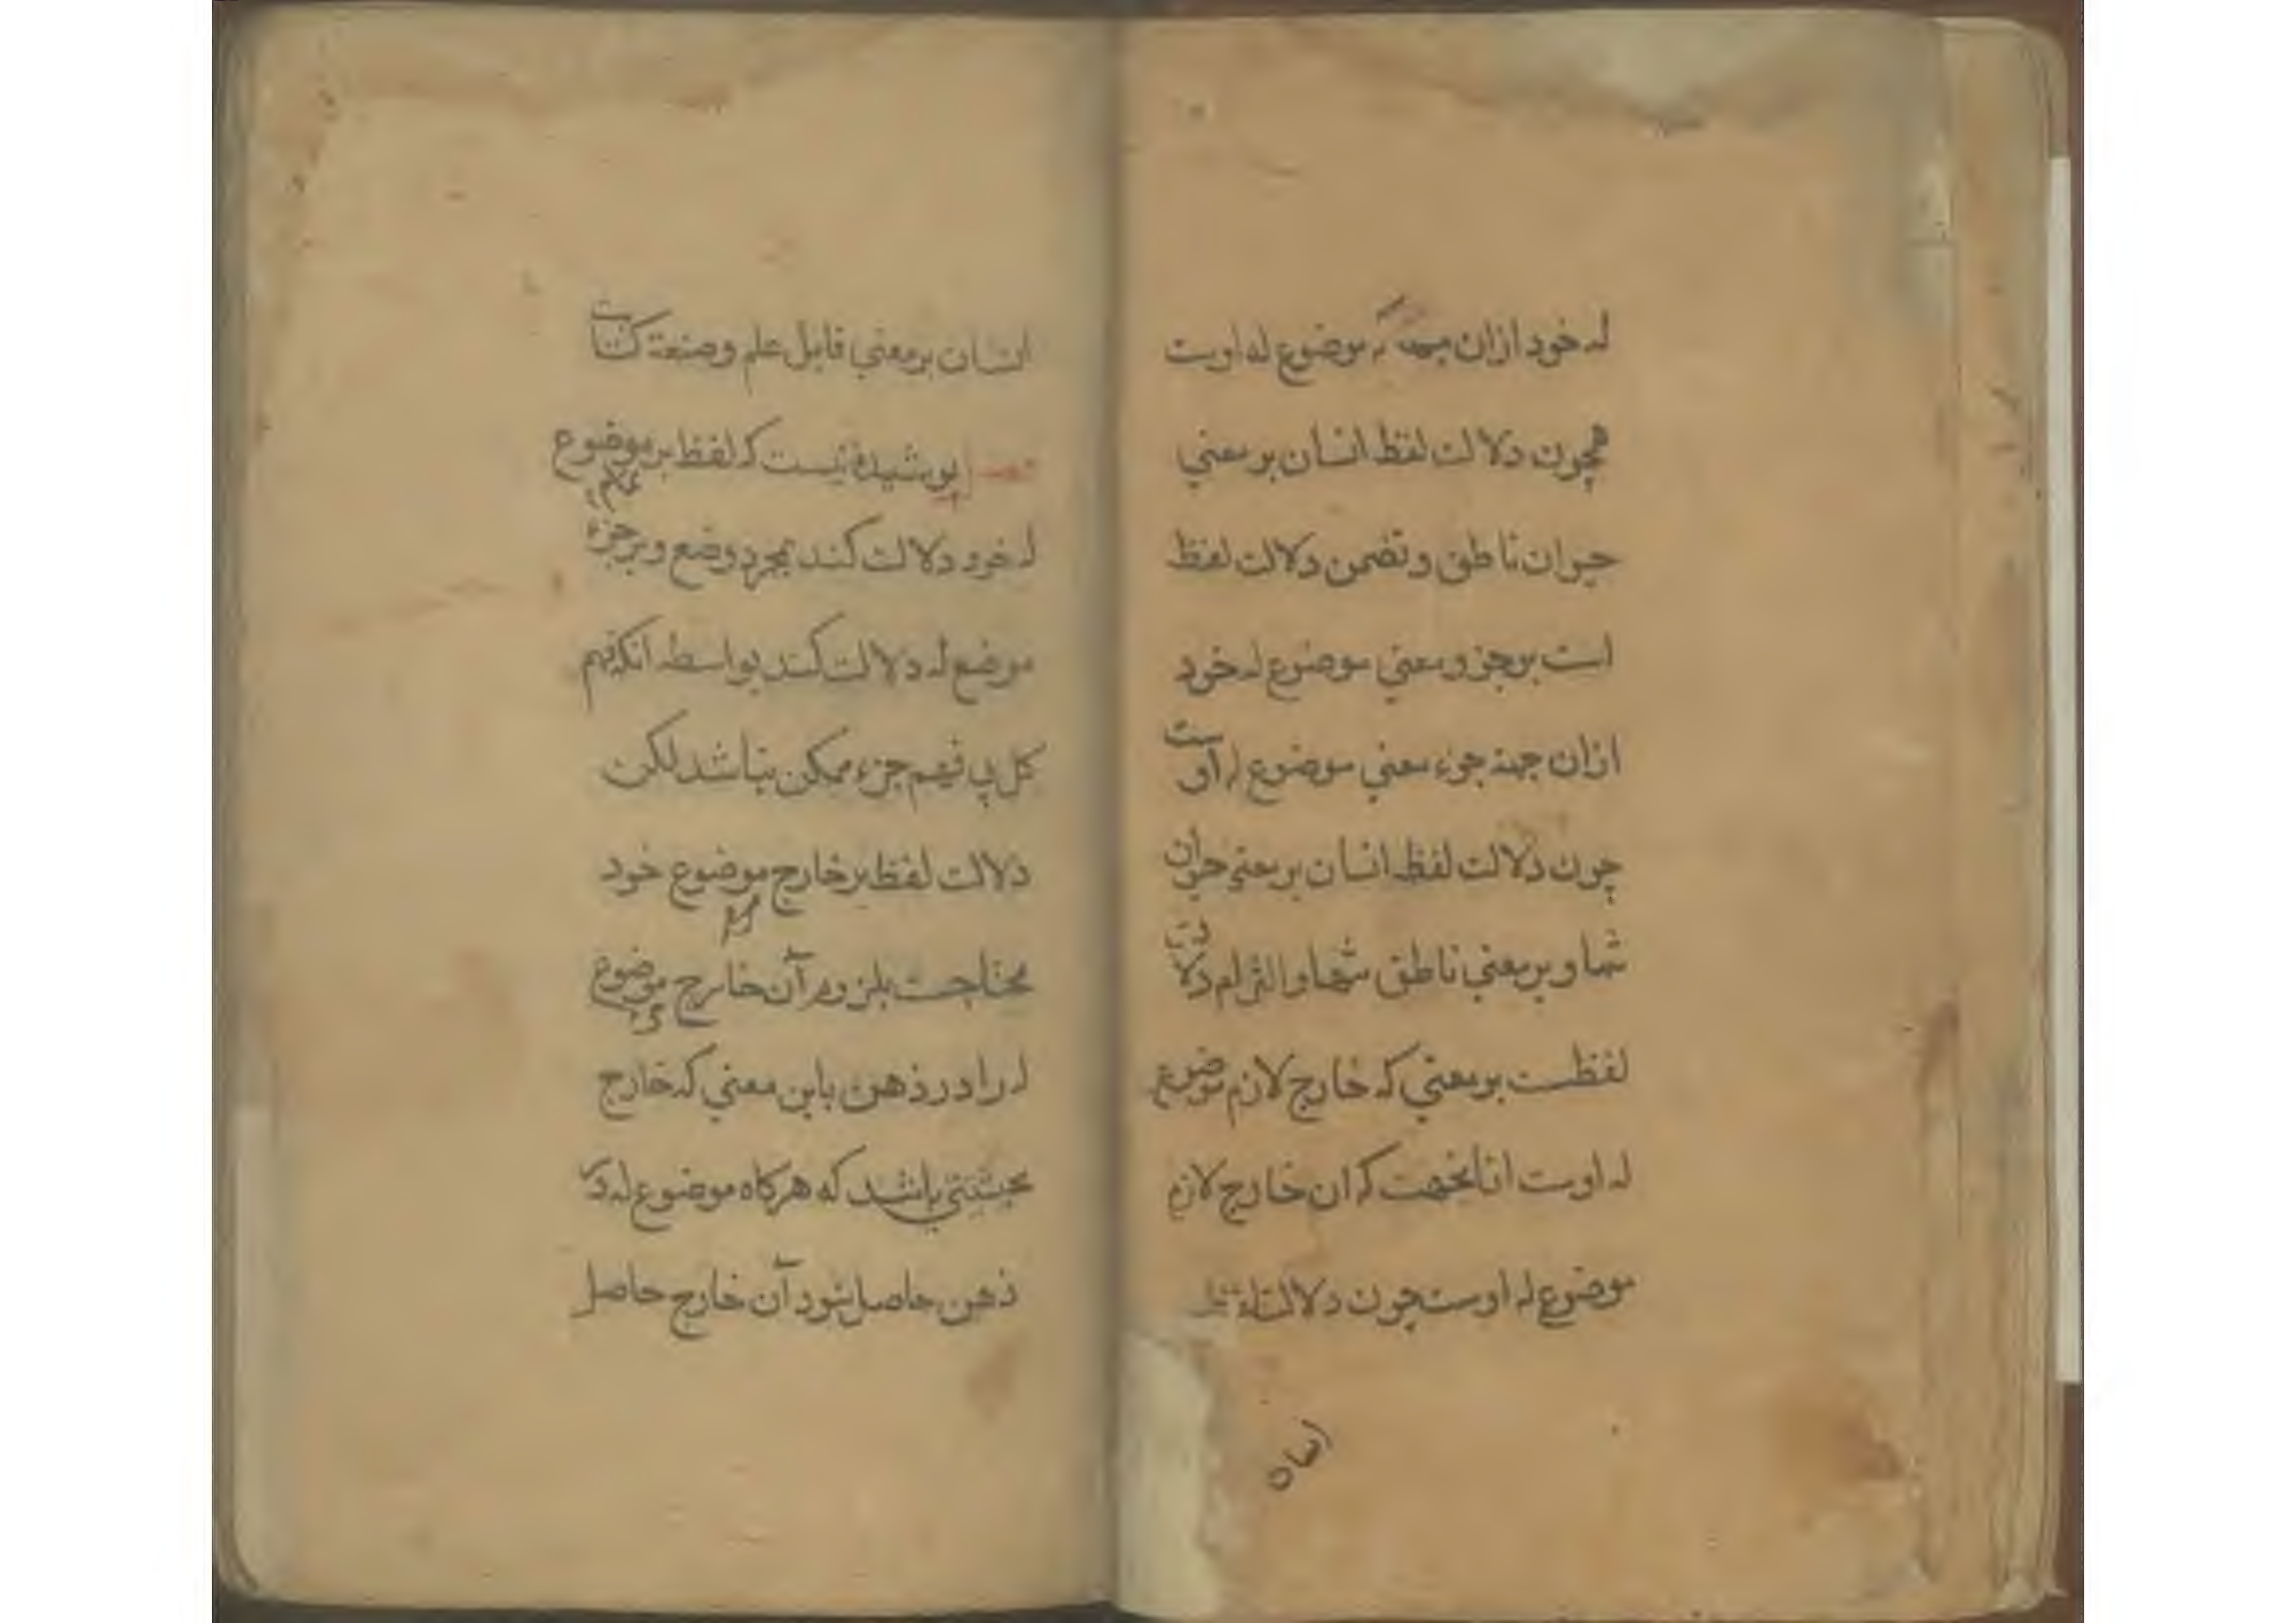 له خود ازان جهة که موضوع له اوست
همچون دلالت لفظ انسان بر معني
حیوان ناطق و تضمن دلالت لفظ
است بر جزو معني موضوع له خود
ازان جهة جزء معني موضوع له اوست
چون دلالت لفظ انسان بر معني حیوان
تنها و بر معني ناطق تنها و التزام دلالت
لفظست بر معني که خارج لازم موضوع
له اوست ازانجهت که ان خارج لازم
موضوع له اوست چون دلالت لفظ
انسان
انسان بر معني قابل علم و صنعة کتابت
فصل پوشیده نیست که لفظ بر موضوع
له خود دلالت کند بمجرد وضع و بر جزء
موضع له دلالت کند بواسطه انکه فهم
کل بي فهم جزء ممکن نباشد لکن
دلالت لفظ بر خارج موضوع خود
محتاجست بلزوم آن خارج موضوع
له را در ذهن باین معني که خارج
بحیثیتي باشد که هرکاه موضوع له در
ذهن حاصل شود آن خارج حاصل